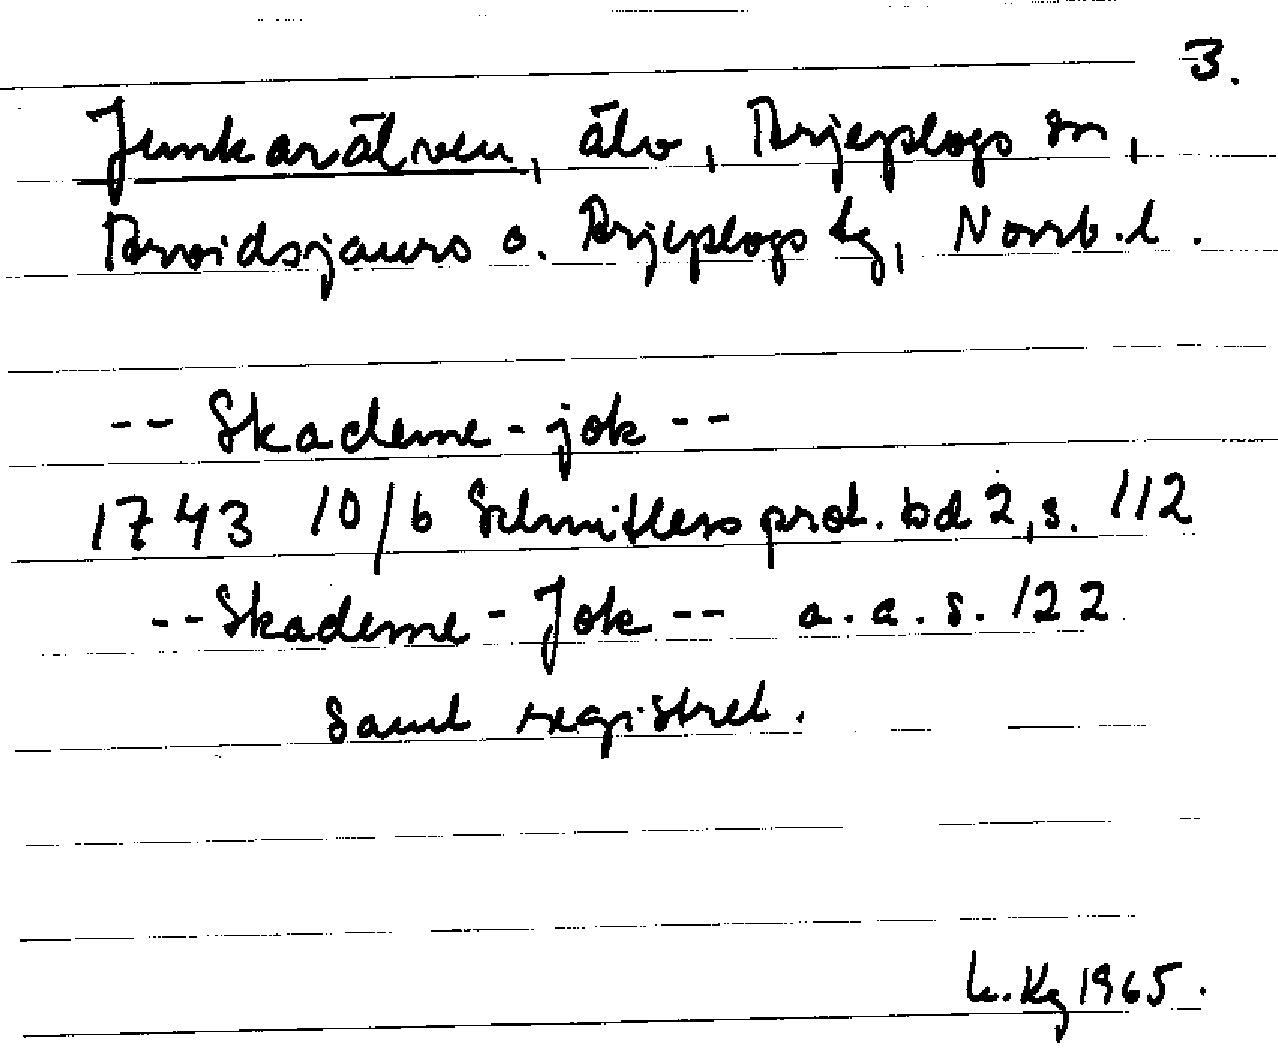 3.
Junkarälven, älv, Arjeplogs sn,
Arvidsjaurs o. Arjeplogs tg, Norrb. l.
-- Skademe-jok --
1743 10/6 Schnitlers prot. bd 2, s. 112
-- Skademe-Jok -- a. a. s. 122
samt registret.
L. Kg 1965.